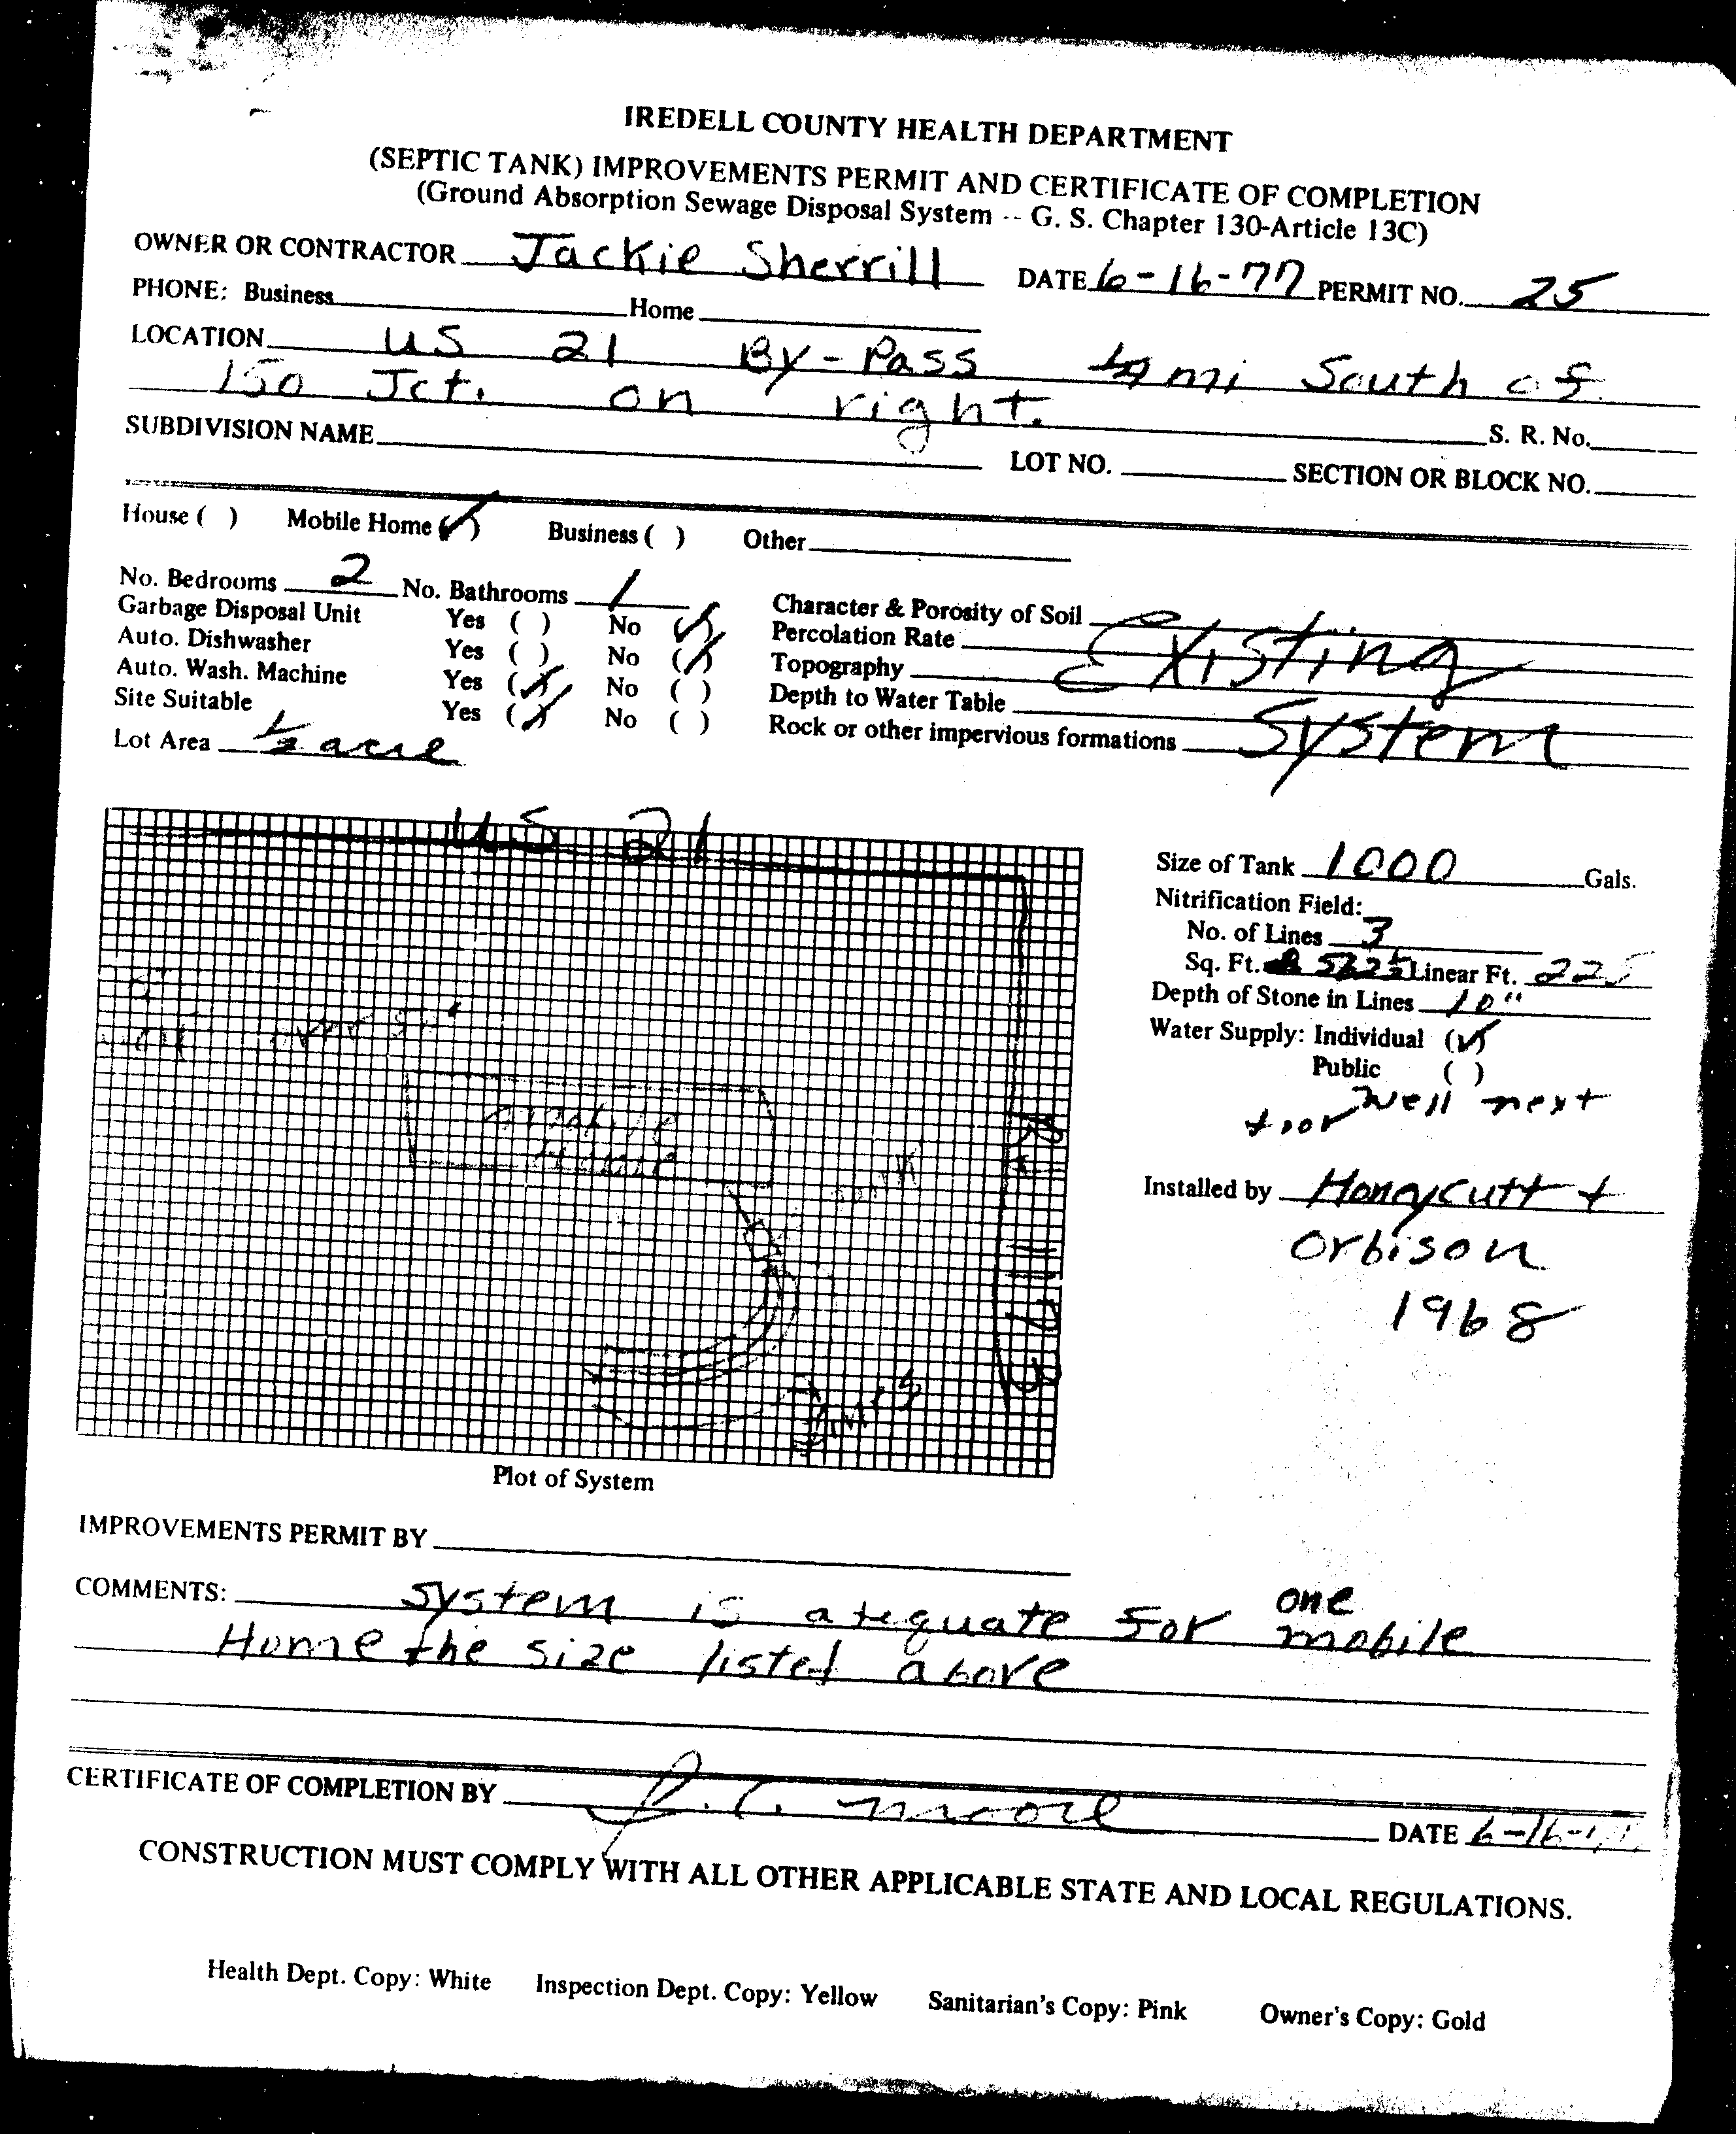 IREDELL COUNTY HEALTH DEPARTMENT
(SEPTIC TANK) IMPROVEMENTS PERMIT AND CERTIFICATE OF COMPLETION
(Ground Absorption Sewage Disposal System -- G. S. Chapter 130-Article 13C)
OWNER OR CONTRACTOR Jackie Sherrill DATE 6-16-77 PERMIT NO. 25
PHONE: Business Home
LOCATION US 21 By-Pass mi South of
150 Jct. on right. S. R. No.
SUBDIVISION NAME LOT NO. SECTION OR BLOCK NO.
House ( ) Mobile Home (✓) Business ( ) Other
No. Bedrooms 2 No. Bathrooms 1
Garbage Disposal Unit Yes ( ) No (✓)
Auto. Dishwasher Yes ( ) No (✓)
Auto. Wash. Machine Yes (✓) No ( )
Site Suitable Yes (✓) No ( )
Lot Area 1/2 acre
Character & Porosity of Soil
Percolation Rate Existing
Topography
Depth to Water Table
Rock or other impervious formations System
US 21
mobile
Home
Tank
Lines
Plot of System
Size of Tank 1000 Gals.
Nitrification Field:
No. of Lines 3
Sq. Ft. Linear Ft. 225
Depth of Stone in Lines 10"
Water Supply: Individual (✓)
Public ( )
Well next
door
Installed by Honeycutt +
Orbison
1968
IMPROVEMENTS PERMIT BY
COMMENTS: system is adequate for one mobile
Home the size listed above
CERTIFICATE OF COMPLETION BY J. C. Moore DATE 6-16-77
CONSTRUCTION MUST COMPLY WITH ALL OTHER APPLICABLE STATE AND LOCAL REGULATIONS.
Health Dept. Copy: White Inspection Dept. Copy: Yellow Sanitarian's Copy: Pink Owner's Copy: Gold